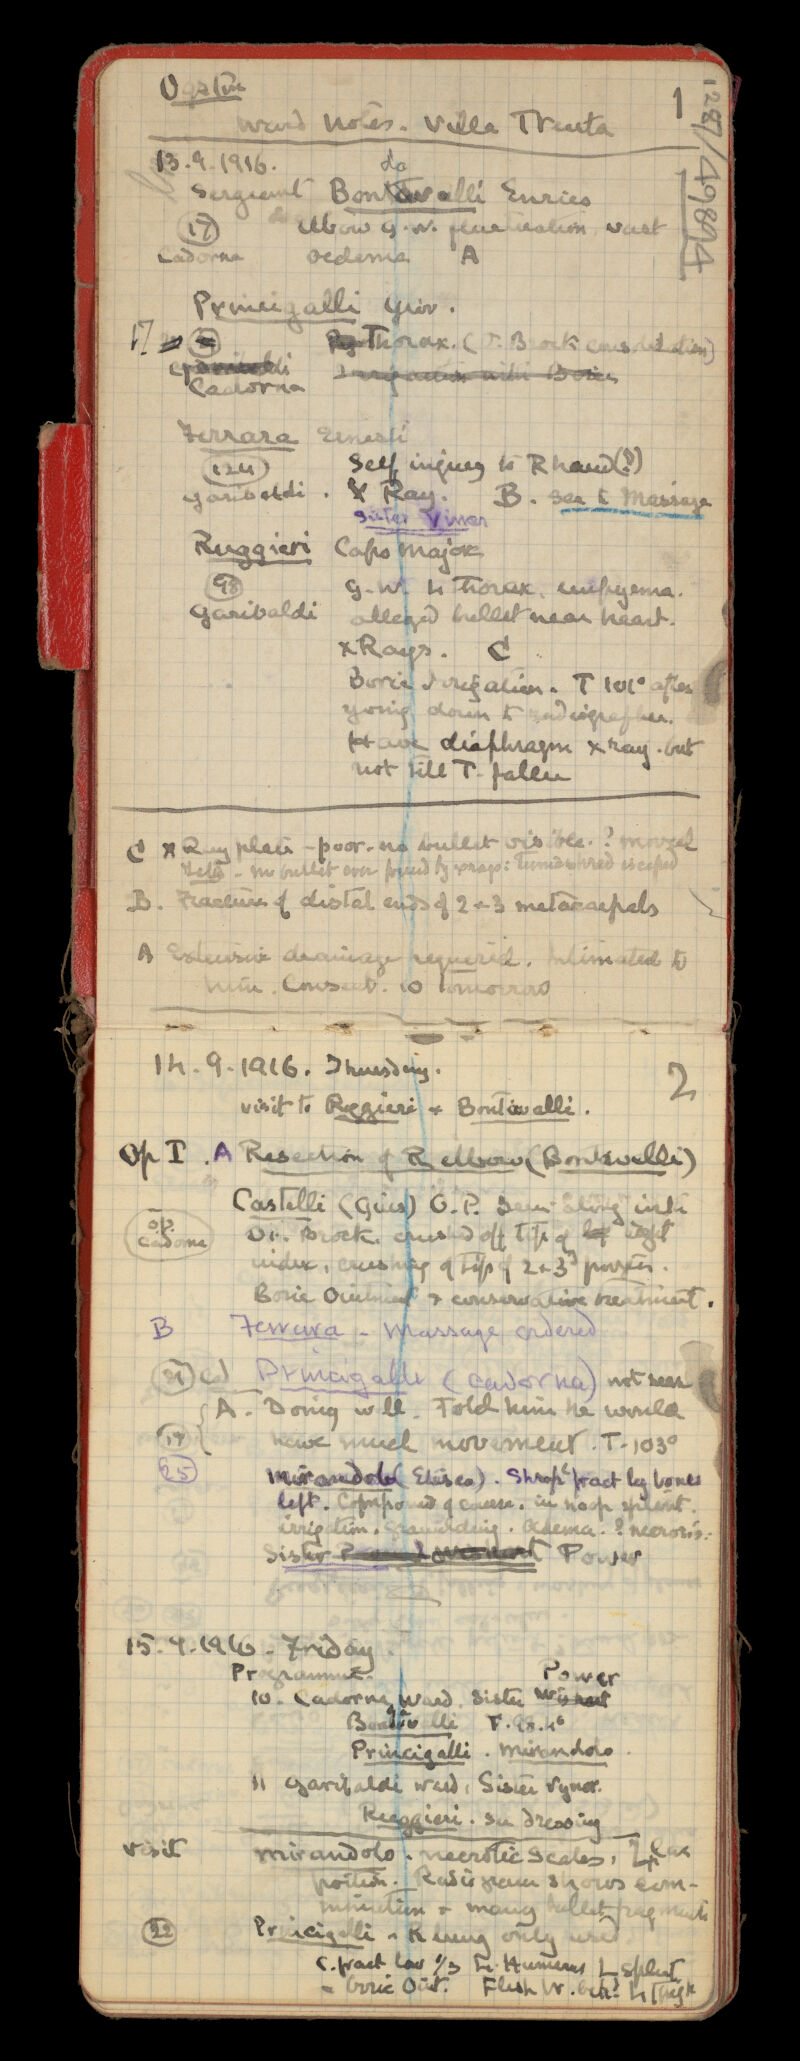 Ogston
1
Ward Notes. Villa Trenta
13.9.1916.
do
Sergeant Bontavalli Enrico
17
Elbow G.W. penetration, vast
Cadorna oedema A
Princigalli Giov.
17
Thorax. (Dr. Brock consultation)
Garibaldi Irrigation with Boric
Cadorna
Ferrara Ernesti
124 Self injury to R hand (?)
Garibaldi. X Ray. B. See to Massage
Sister Viner
Ruggieri Capo Major
98 G.W. L Thorax, empyema.
Garibaldi alleged bullet near heart.
x Rays. C
Boric Irrigation. T 101° after
going down to radiographer.
Have diaphragm x ray. but
not till T. fallen
C x Ray plate - poor. no bullet visible. ? moved
no bullet ever found by xrays: escaped
B. Fracture of distal ends of 2 & 3 metacarpals
A Extensive drainage required. Intimated to
him. Consent. 10 tomorrow
14.9.1916. Thursday.
2
visit to Ruggieri & Bontavalli.
Op I. A Resection of R elbow (Bontavalli)
Castelli (Gius) O.P. Seen along with
op. Cadorna Dr. Brock. crushed off tip of left right
index, crushing of tips of 2 & 3d fingers.
Boric Ointment & conservative treatment.
B Ferrara - Massage ordered
Princigalli (Cadorna) not seen
A. Doing well. Told him he would
17 have much movement. T. 103°
25 Mirandolo (Eliseo). Shrapl fract leg bones
left. Compound of course. in hoop splint.
irrigation. Granulating. Oedema. ? necrosis.
Sister Power
15.9.1916 - Friday.
Programme. Power
10. Cadorna Ward. Sister
Bontavalli T. 98.4°
Princigalli. Mirandolo.
11 Garibaldi ward, Sister Vynor.
Ruggieri. See dressing
Visit Mirandolo. necrotic scales,
position. Radiogram shows com-
minution & many bullet fragments
22 Princigalli - R lung only used
C. fract low 1/3 L. Humerus L splint
- boric Oint. Flesh W. behd L Thigh